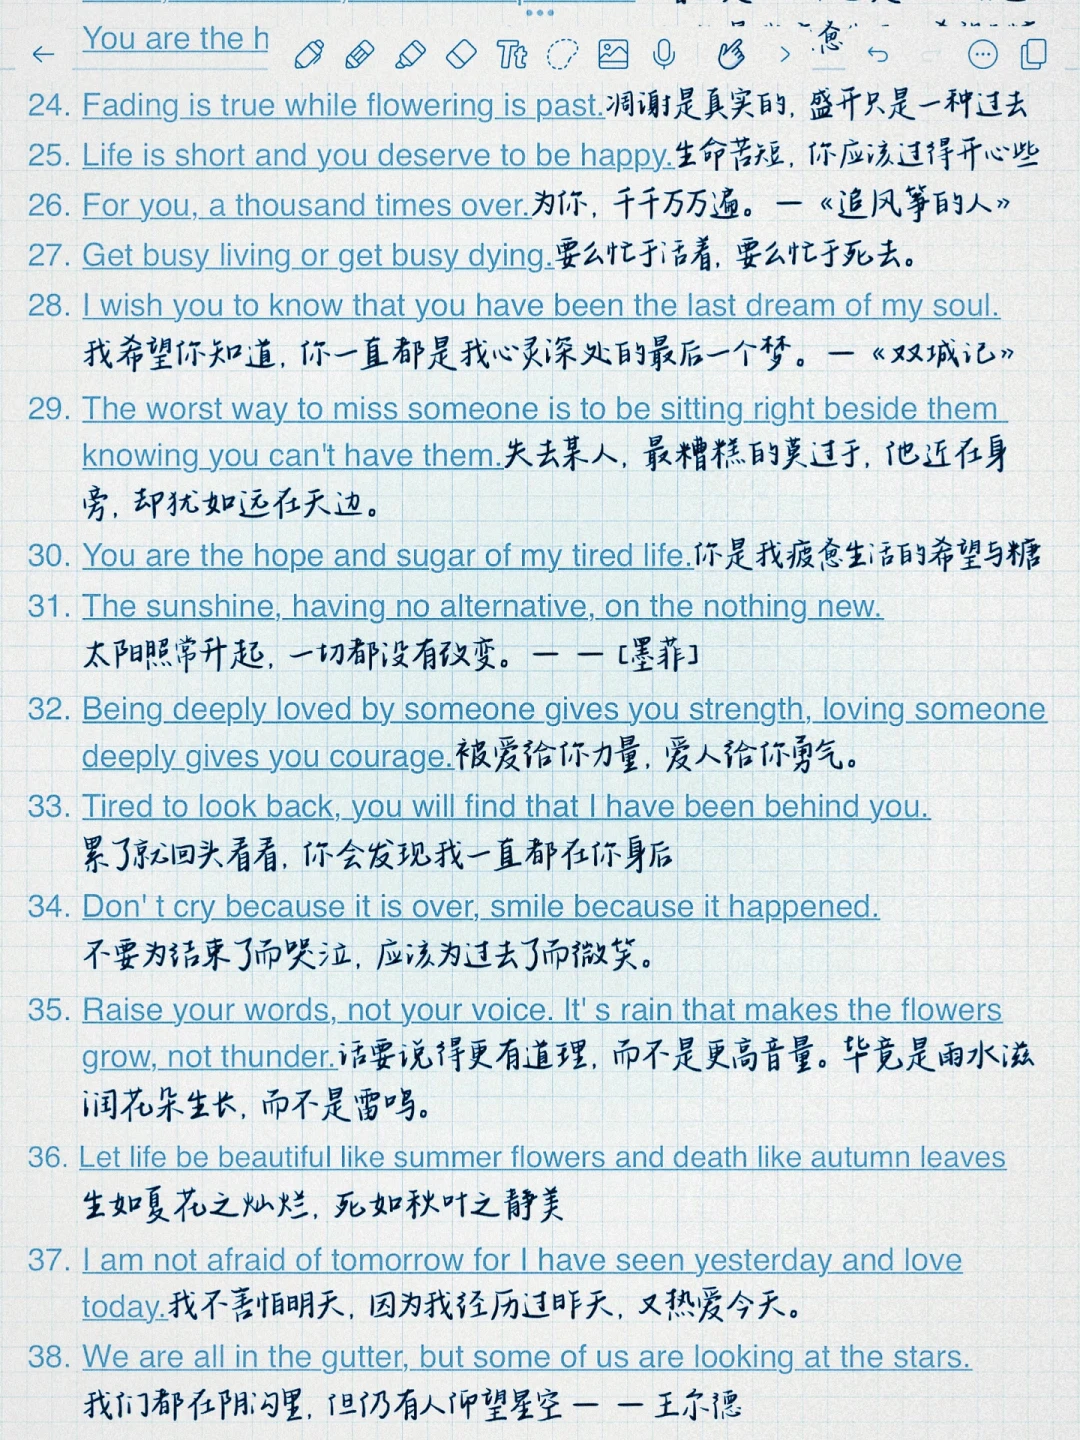 You are the h
Tt
24. Fading is true while flowering is past.凋谢是真实的, 盛开只是一种过去
25. Life is short and you deserve to be happy.生命苦短, 你应该过得开心些
26. For you, a thousand times over.为你, 千千万万遍。—《追风筝的人》
27. Get busy living or get busy dying.要么忙于活着, 要么忙于死去。
28. I wish you to know that you have been the last dream of my soul.
我希望你知道, 你一直都是我心灵深处的最后一个梦。—《双城记》
29. The worst way to miss someone is to be sitting right beside them
knowing you can't have them.失去某人, 最糟糕的莫过于, 他近在身
旁, 却犹如远在天边。
30. You are the hope and sugar of my tired life.你是我疲惫生活的希望与糖
31. The sunshine, having no alternative, on the nothing new.
太阳照常升起, 一切都没有改变。— — [墨菲]
32. Being deeply loved by someone gives you strength, loving someone
deeply gives you courage.被爱给你力量, 爱人给你勇气。
33. Tired to look back, you will find that I have been behind you.
累了就回头看看, 你会发现我一直都在你身后
34. Don' t cry because it is over, smile because it happened.
不要为结束了而哭泣, 应该为过去了而微笑。
35. Raise your words, not your voice. It' s rain that makes the flowers
grow, not thunder.话要说得更有道理, 而不是更高音量。毕竟是雨水滋
润花朵生长, 而不是雷鸣。
36. Let life be beautiful like summer flowers and death like autumn leaves
生如夏花之灿烂, 死如秋叶之静美
37. I am not afraid of tomorrow for I have seen yesterday and love
today.我不害怕明天, 因为我经历过昨天, 又热爱今天。
38. We are all in the gutter, but some of us are looking at the stars.
我们都在阴沟里, 但仍有人仰望星空 — — 王尔德